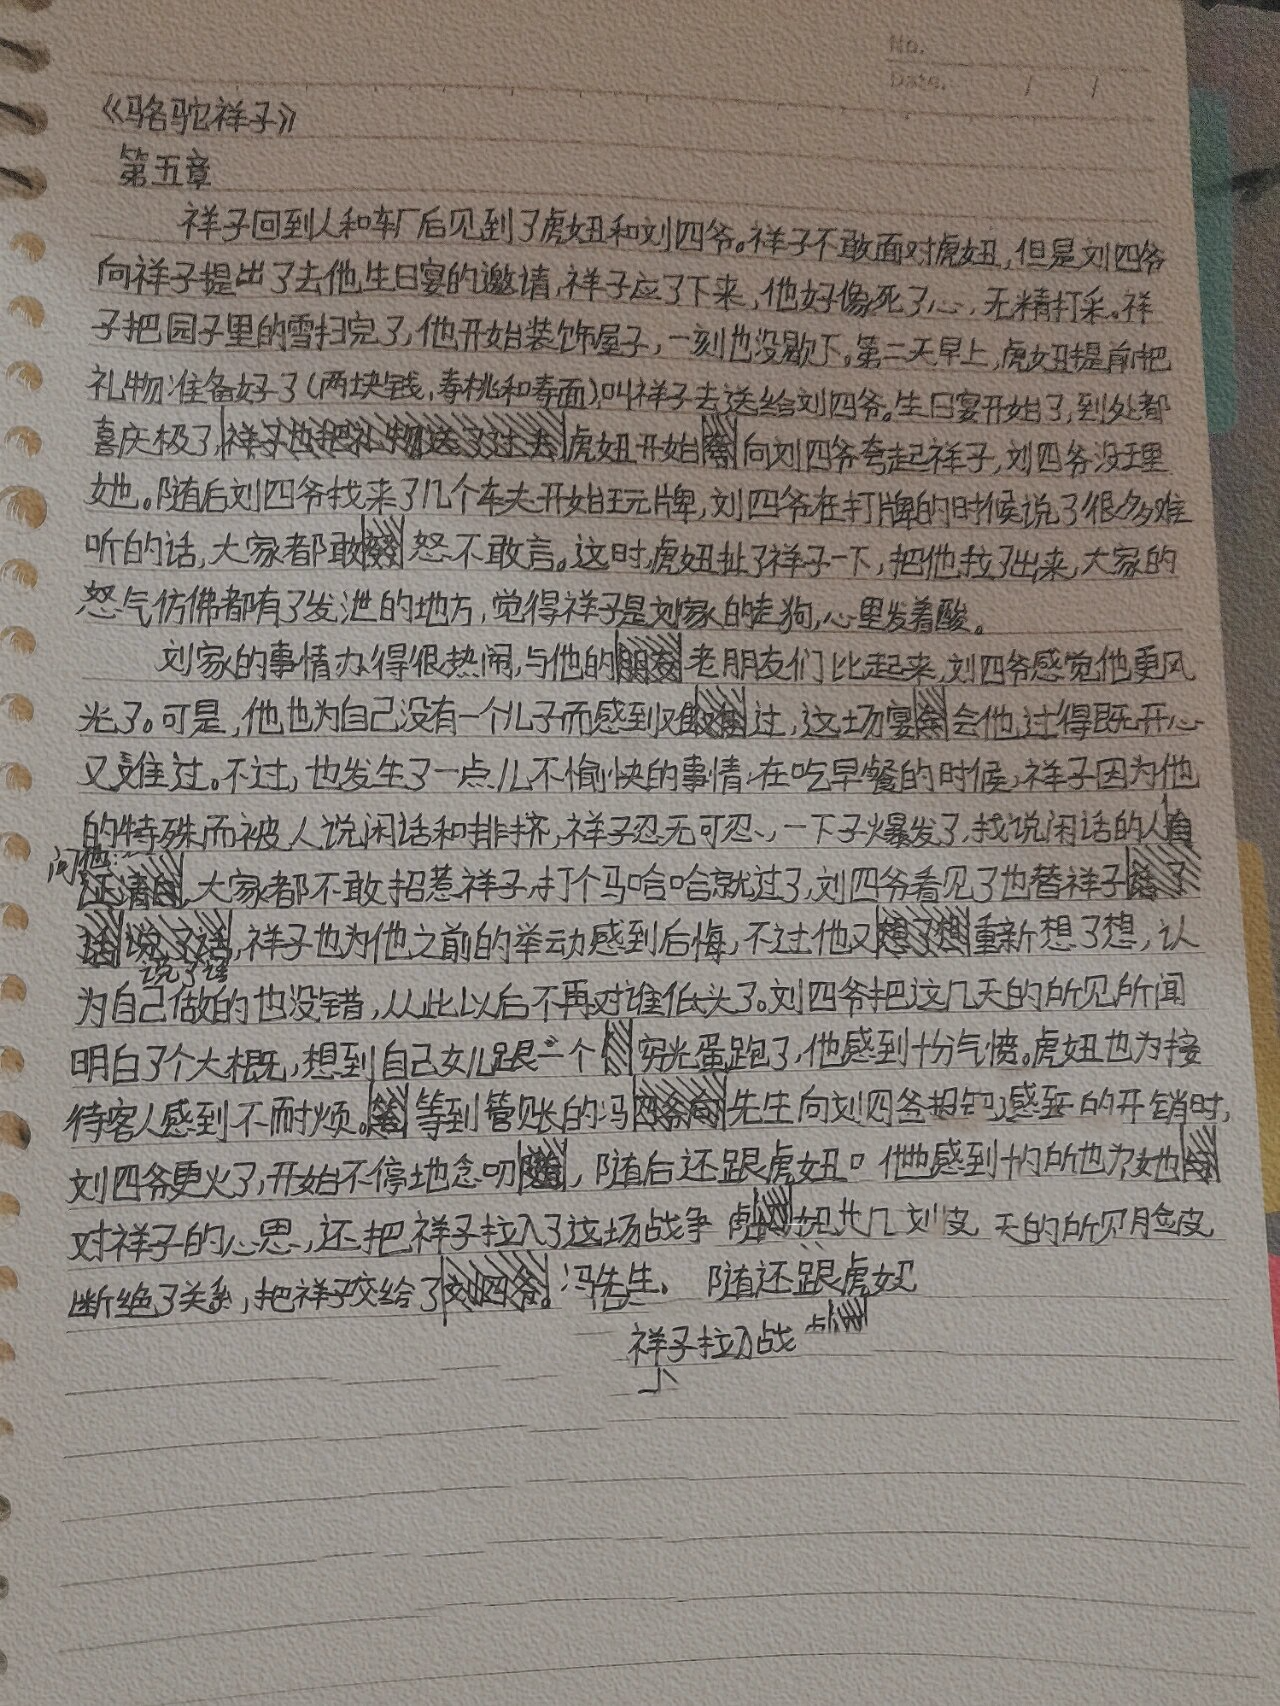 No.
Date. / /
《骆驼祥子》
第五章
祥子回到人和车厂后见到了虎妞和刘四爷。祥子不敢面对虎妞,但是刘四爷
向祥子提出了去他生日宴的邀请,祥子应了下来,他好像死了心,无精打采。祥
子把园子里的雪扫完了,他开始装饰屋子,一刻也没歇下。第二天早上,虎妞提前把
礼物准备好了(两块钱,寿桃和寿面),叫祥子去送给刘四爷。生日宴开始了,到处都
喜庆极了,虎妞开始向刘四爷夸起祥子,刘四爷没理
她。随后刘四爷找来了几个车夫开始玩牌,刘四爷在打牌的时候说了很多难
听的话,大家都敢怒不敢言。这时,虎妞扯了祥子一下,把他拉了出来,大家的
怒气仿佛都有了发泄的地方,觉得祥子是刘家的走狗,心里发着酸。
刘家的事情办得很热闹,与他的老朋友们比起来,刘四爷感觉他更风
光了。可是,他也为自己没有一个儿子而感到难过,这场宴会他过得既开心
又难过。不过,也发生了一点儿不愉快的事情,在吃早餐的时候,祥子因为他
的特殊而被人说闲话和排挤,祥子忍无可忍,一下子爆发了,找说闲话的人
问他
大家都不敢招惹祥子,打个马哈哈就过了,刘四爷看见了也替祥子
,祥子也为他之前的举动感到后悔,不过他又重新想了想,认
说了话
为自己做的也没错,从此以后不再对谁低头了。刘四爷把这几天的所见所闻
明白了个大概,想到自己女儿跟一个穷光蛋跑了,他感到十分气愤。虎妞也为接
待客人感到不耐烦。等到管账的冯先生向刘四爷的开销时,
刘四爷更火了,开始不停地念叨,随后还跟虎妞。感到所也为她
对祥子的心思,还把祥子拉入了这场战争 天的所见脸皮
断绝了关系,把祥子交给了冯先生。 随还跟虎妞
祥子拉入战